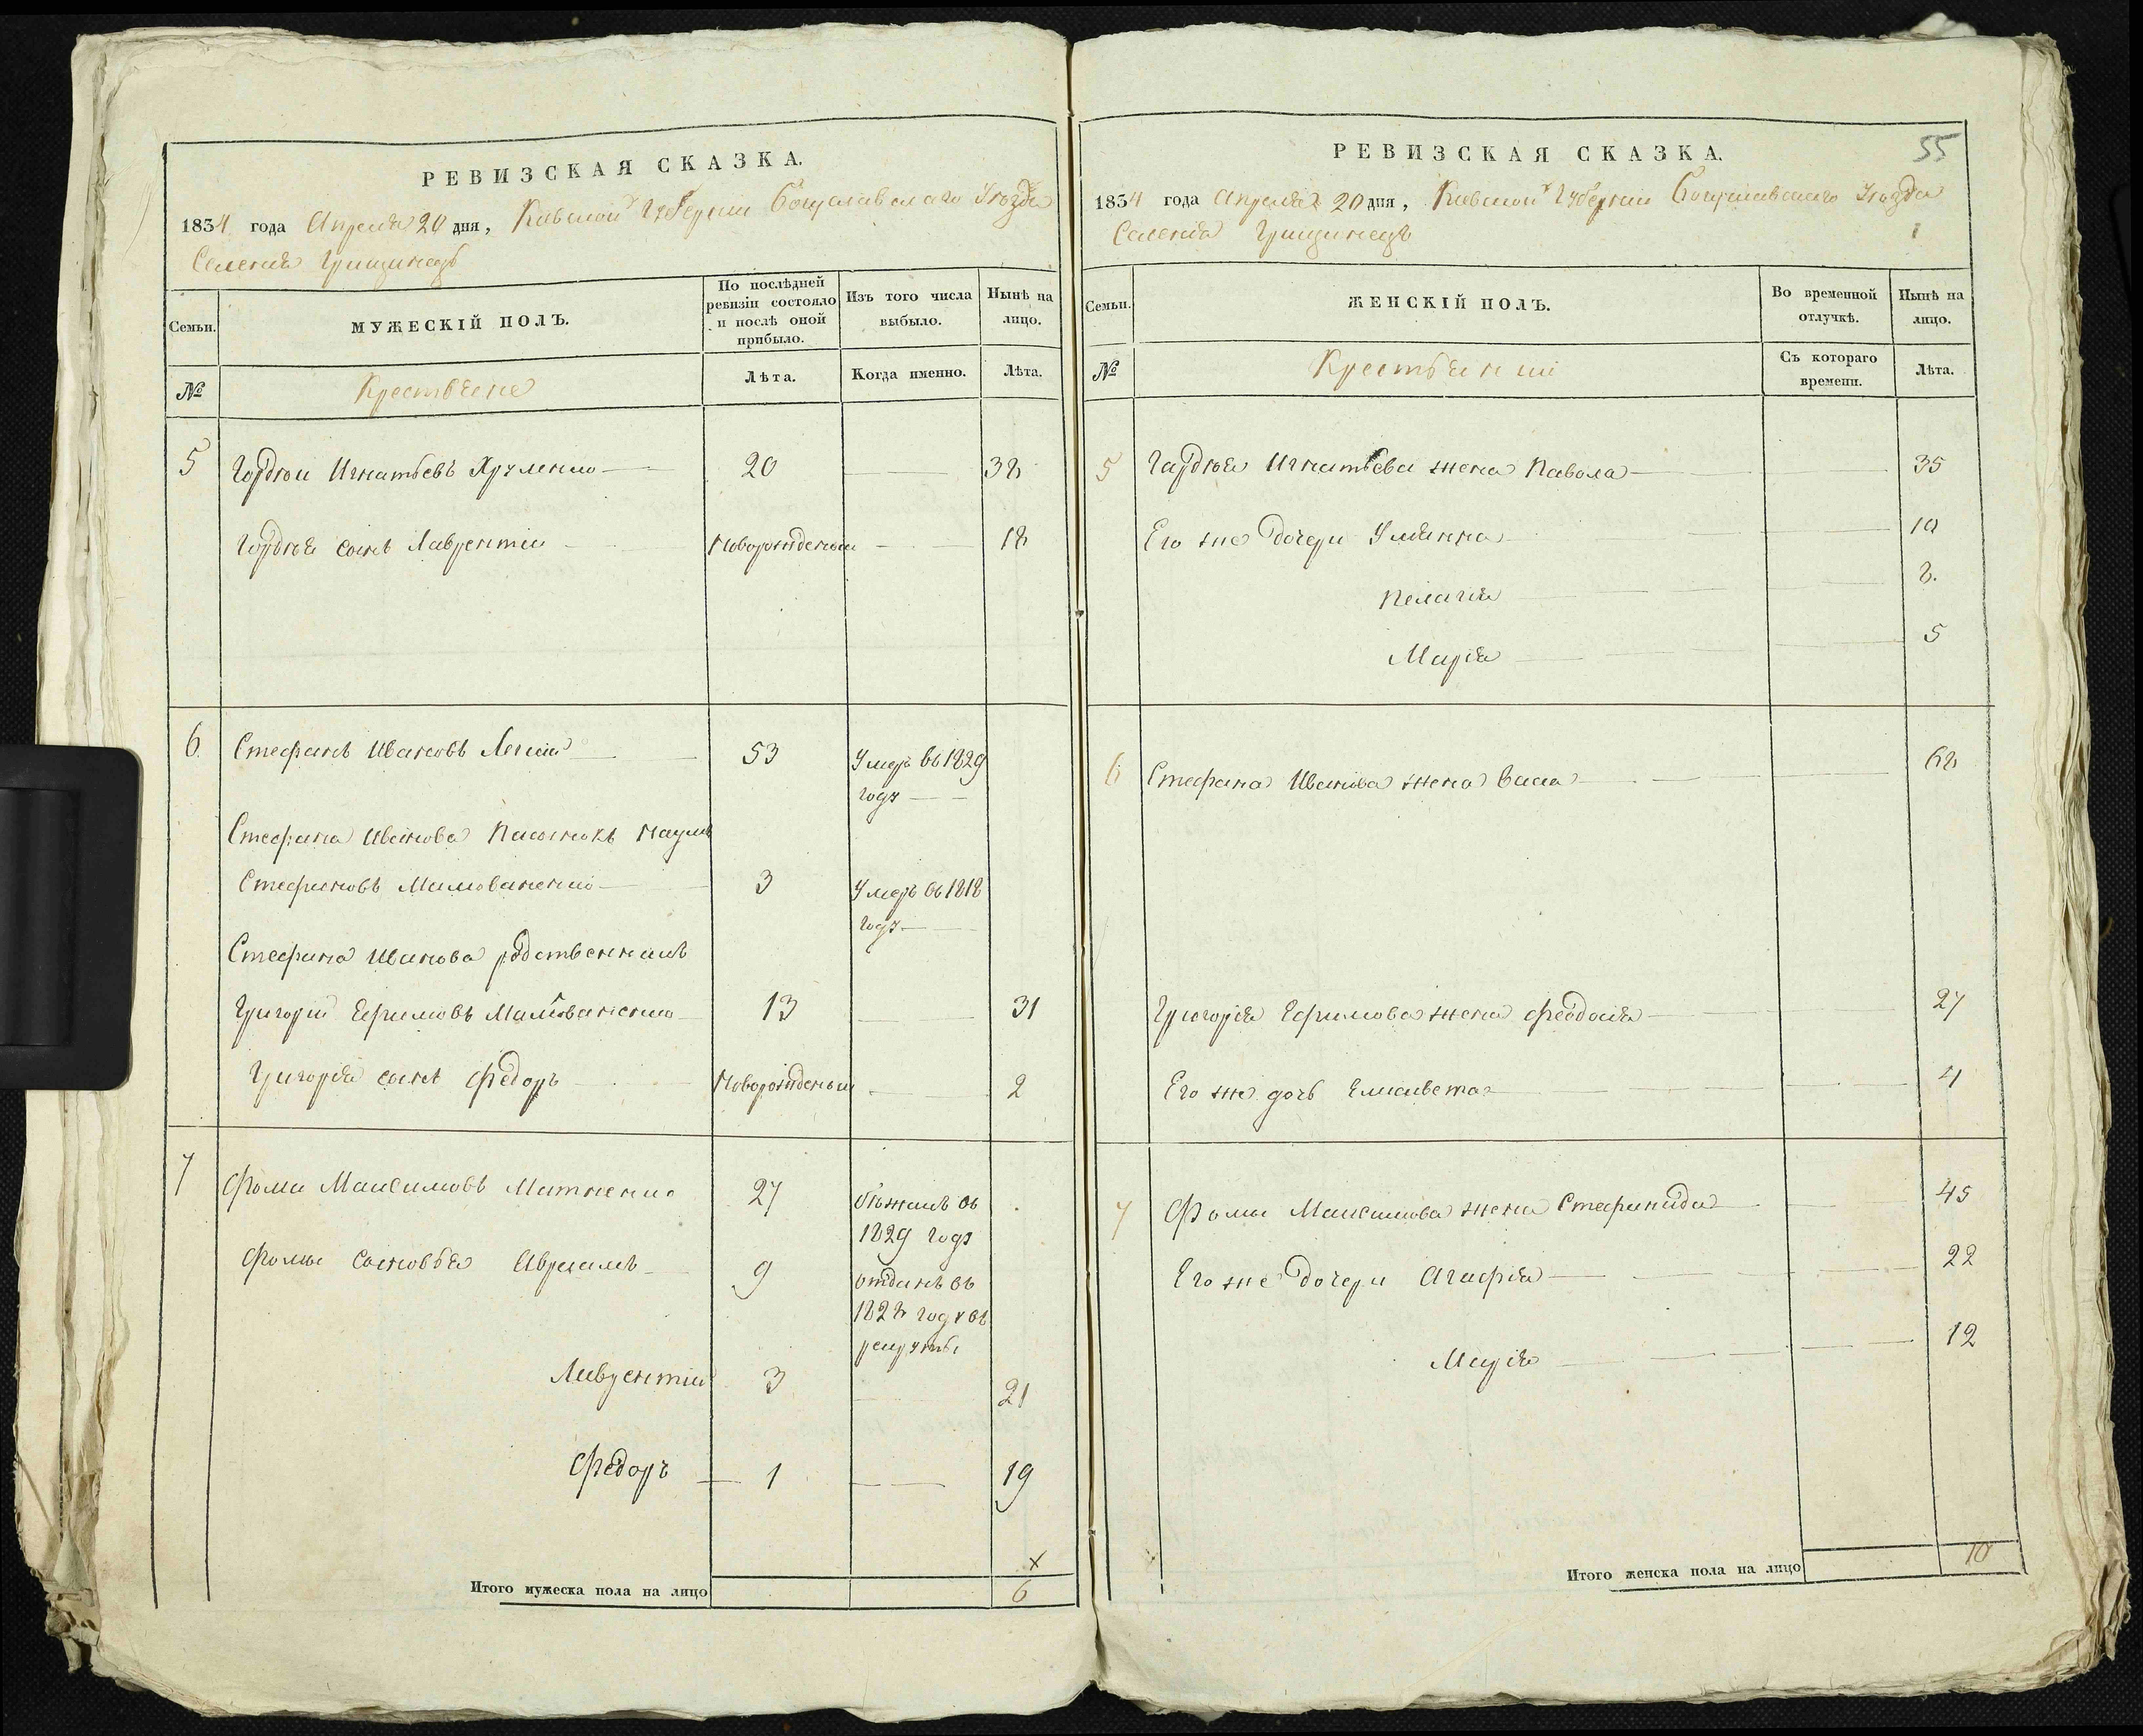 РЕВИЗСКАЯ СКАЗКА.
1834 года Апреля 20 дня, Киевской Губернии Богуславскаго Уѣзда
Селенія Грищинецъ
Семьи.
МУЖЕСКІЙ ПОЛЪ.
По послѣдней ревизіи состояло и послѣ оной прибыло.
Изъ того числа выбыло.
Нынѣ на лицо.
№
Крестьяне
Лѣта.
Когда именно.
Лѣта.
5 Гордѣй Игнатьевъ 20 38
Гордѣя сынъ Лаврентій Новорожденый 18
6. Стефанъ Ивановъ 53 Умеръ въ 1829
году
Стефана Иванова Пасынокъ Наумъ
Стефановъ Малованенко 3 Умеръ въ 1818
году
Стефана Иванова родственникъ
Григорій Ефимовъ Малованенко 13 31
Григорія сынъ Федоръ Новорожденый 2
7 Фома Максимовъ 27 бѣжалъ въ
1829 году
Фомы сыновья Авраамъ 9 отданъ въ
1828 году въ
рекруты
Лаврентій 3 21
Федоръ 1 19
х
Итого мужеска пола на лицо 6
РЕВИЗСКАЯ СКАЗКА.
55
1834 года Апреля 20 дня, Киевской Губерніи Богуславскаго Уѣзда
Селенія Грищинецъ
Семьи.
ЖЕНСКІЙ ПОЛЪ.
Во временной отлучкѣ.
Нынѣ на лицо.
№
Крестьянки
Съ котораго времени.
Лѣта.
5 Гордѣя Игнатьева жена Павола 35
Его же дочери Ульянна 10
Пелагія 8.
Марія 5
6 Стефана Иванова жена Васа 68
Григорія Ефимова жена Феодосія 27
Его же дочь Елисавета 4
7 Фомы Максимова жена Стефанида 45
Его же дочери Агафія 22
Марія 12
Итого женска пола на лицо 10